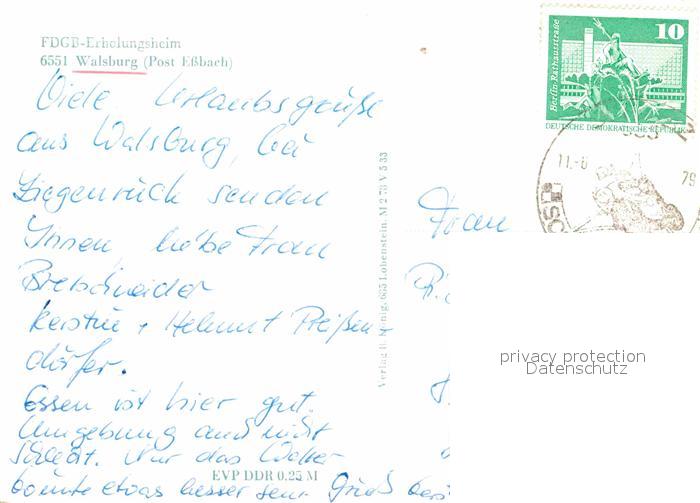 FDGB-Erholungsheim
6551 Walsburg (Post Eßbach)
Viele Urlaubsgrüße
aus Walsburg, bei
Ziegenrück senden
Ihnen liebe Frau
Bretschneider
Kerstin + Helmut Preißen-
dörfer.
Essen ist hier gut.
Umgebung auch nicht
schlecht. Nur das Wetter
könnte etwas besser sein. Gruß
EVP DDR 0.25 M
Verlag R. König, 685 Lobenstein. M 2 78 V 5 33
Frau
10
Berlin-Rathausstraße
DEUTSCHE DEMOKRATISCHE REPUBLIK
11.-8
79
privacy protection
Datenschutz